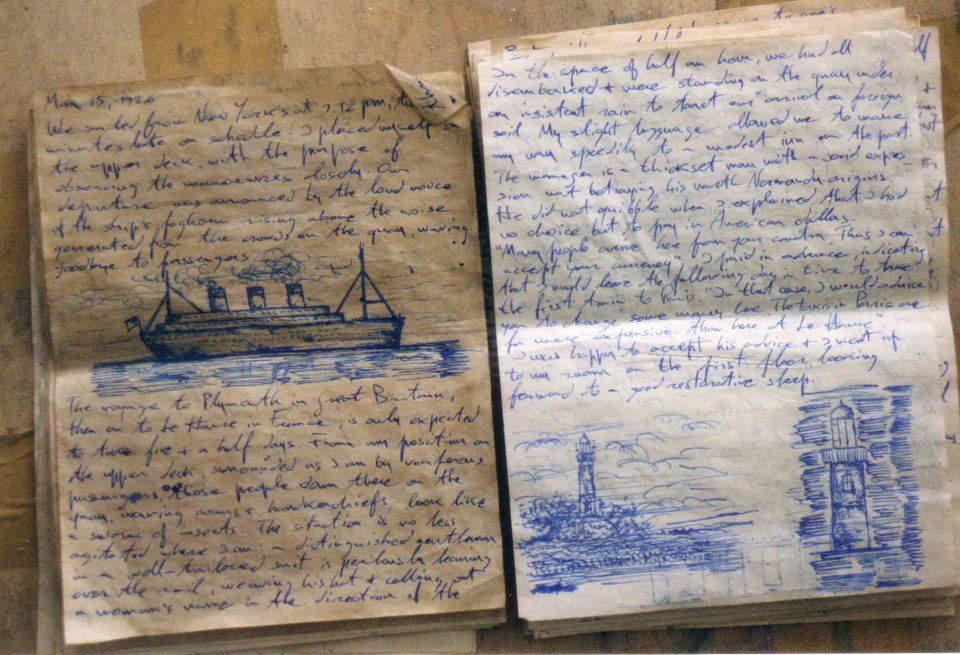 May 15, 1920
We sailed from New York at 7.12 pm, twelve
minutes late on schedule. I placed myself on
the upper deck, with the purpose of
observing the manoeuvres closely. Our
departure was announced by the loud voice
of the ship's foghorn rising above the noise
generated from the crowds on the quay waving
goodbye to passengers.
The voyage to Plymouth in Great Britain,
then on to Le Havre in France, is only expected
to take five + a half days. From my position on
the upper deck, surrounded as I am by vociferous
passengers, those people down there on the
quay, waving arms + handkerchiefs look like
a swarm of insects. The situation is no less
agitated where I am; a distinguished gentleman
in a well-tailored suit is perilously leaning
over the rail, weaving his hat + calling out
a woman's name in the direction of the
In the space of half an hour, we had all
disembarked + were standing on the quay under
an insistent rain to toast our arrival on foreign
soil. My slight language allowed me to make
my way speedily to a modest inn on the port.
The manager is a thickset man with a jovial expres
sion not betraying his north Normandy origins.
He did not quibble when I explained that I had
no choice but to pay in American dollars.
"Many people arrive here from your country. Thus I can
accept your currency". I paid in advance indicating
that I would leave the following day in time to take
the first train to Paris. "In that case, I would advise
you to change some money here. The taxis in Paris are
far more expensive than here at Le Havre"
I was happy to accept his advice + I went up
to my room on the first floor, looking
forward to a good restorative sleep.